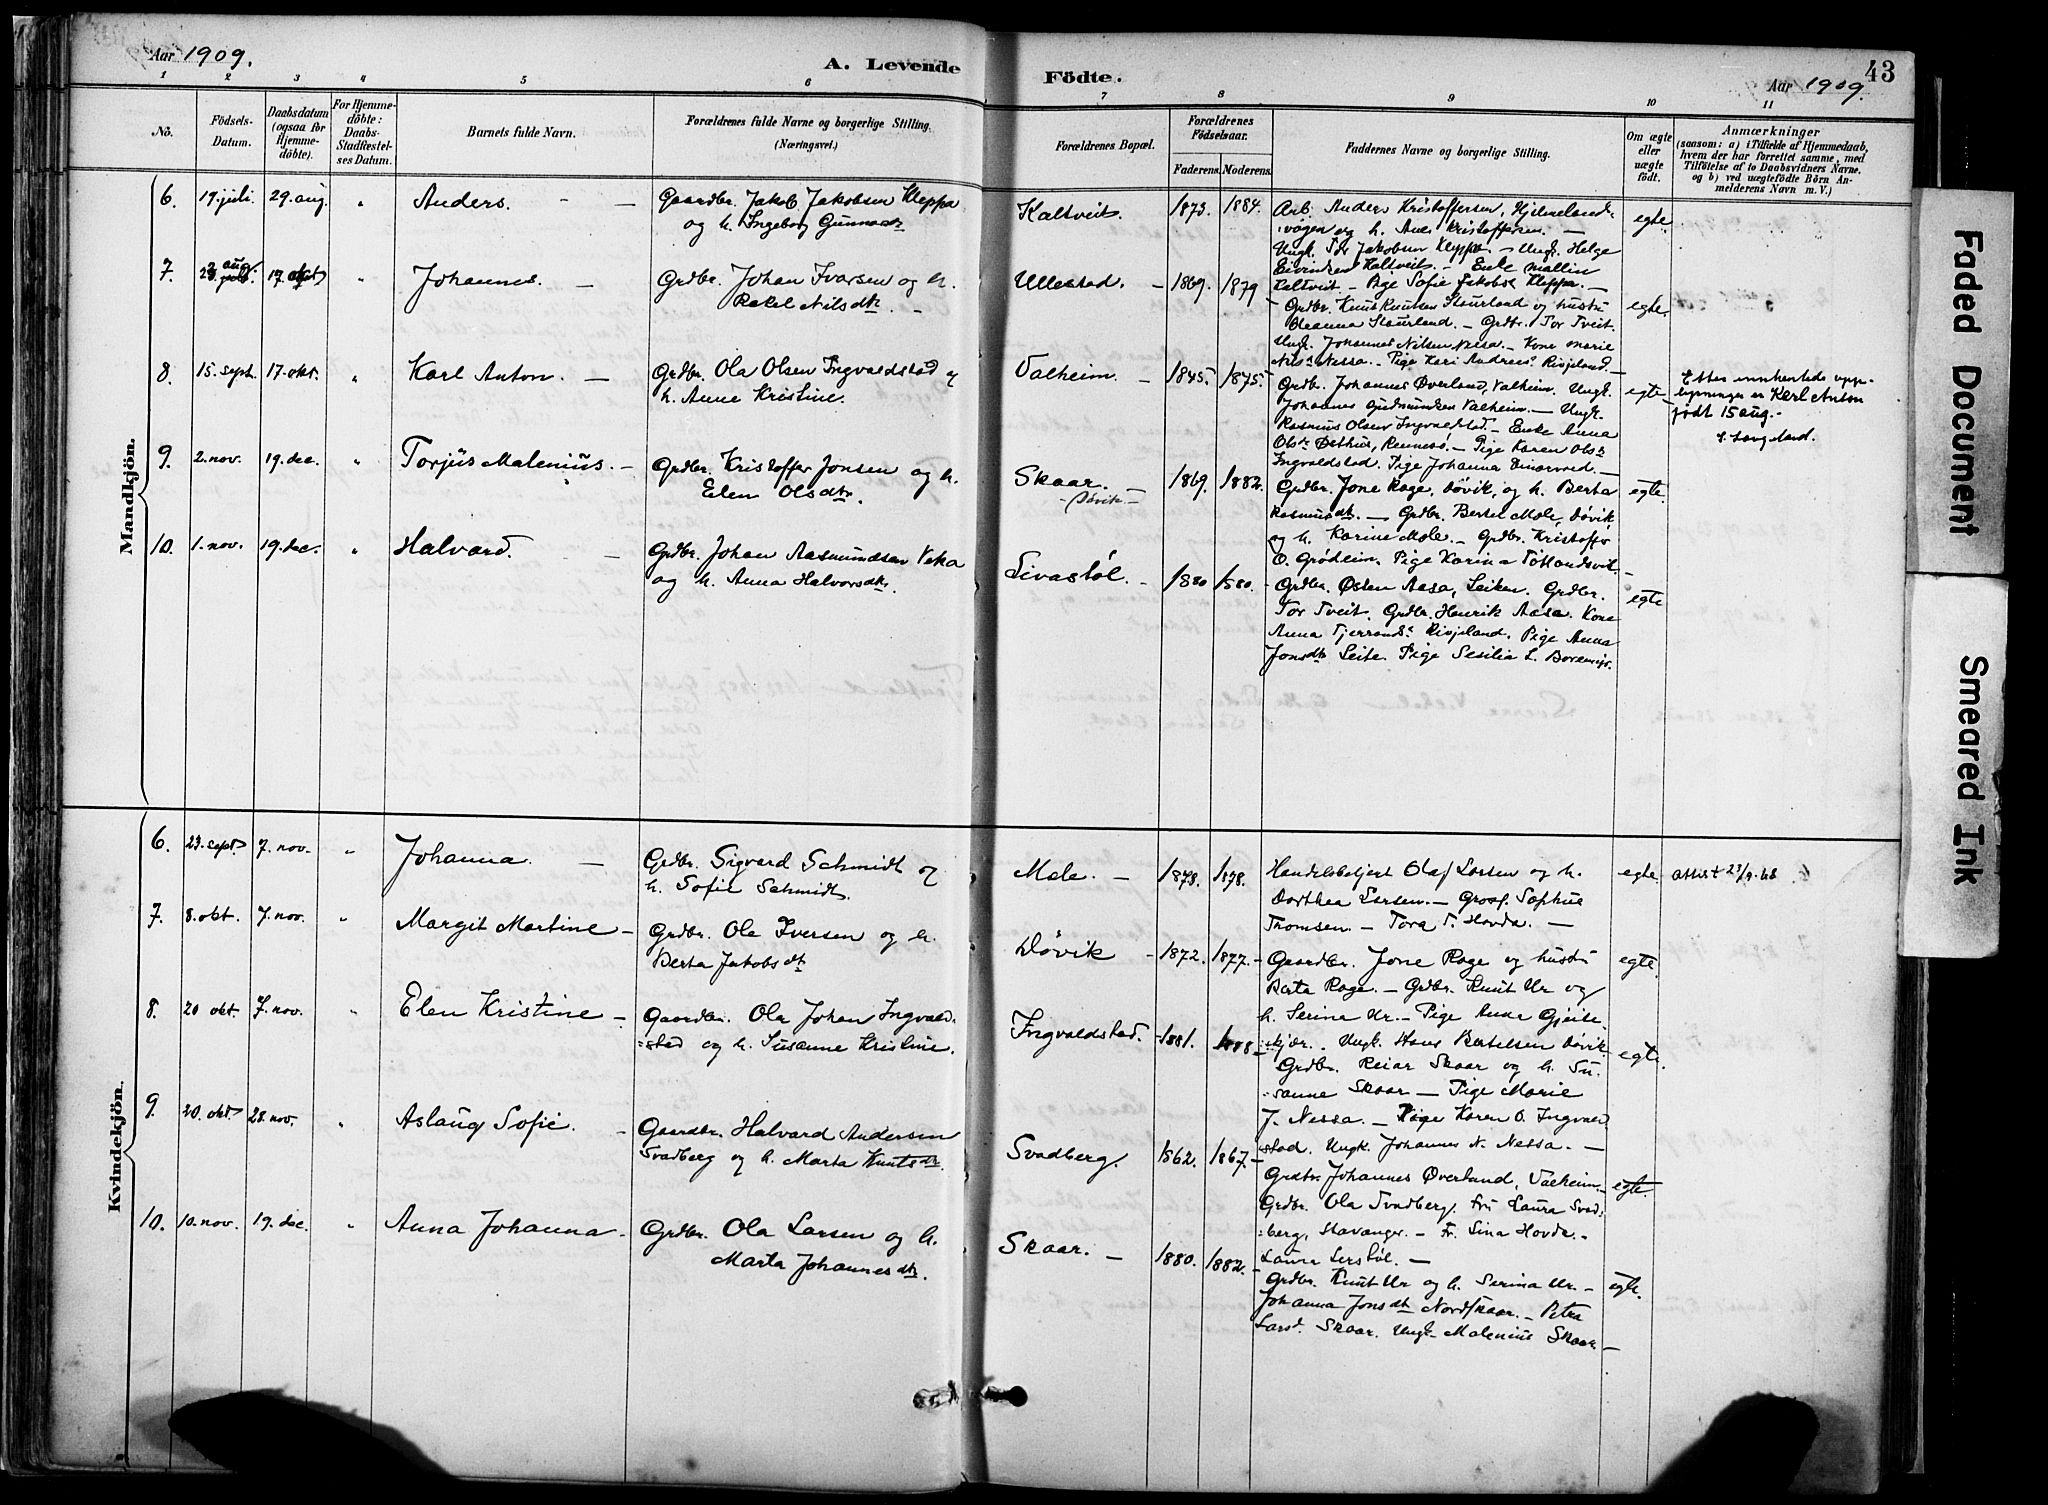 Aar 1909.
A. Levende Födte.
Aar 1909.
43
1 2 3 4 5 6 7 8 9 10 11
No.
Födsels-
Datum.
Daabsdatum
(ogsaa for
Hjemme-
döbte).
For Hjemme-
döbte:
Daabs-
Stadfæstel-
ses Datum.
Barnets fulde Navn.
Forældrenes fulde Navne og borgerlige Stilling.
(Næringsvei.)
Forældrenes Bopæl.
Forældrenes
Födselsaar.
Faderens. Moderens.
Faddernes Navne og borgerlige Stilling.
Om ægte
eller
uægte
födt.
Anmærkninger
(saasom: a) i Tilfælde af Hjemmedaab,
hvem der har forrettet samme, med
Tilföielse af to Daabsvidners Navne,
og b) ved uægtefödte Börn An-
melderens Navn m. V.)
Mandkjön.
6. 19. juli. 29. aug. " Anders. — Gaardbr. Jakob Jakobsen Kleppa
og h. Ingeborg Gunnadtr
Kaltveit. 1873. 1884. Arb. Anders Kristoffersen, Hjelmeland-
vågen og h. Anes Kristoffersen. —
Ungk. Tor Jakobsen Kleppa. — Ungk. Helge
Eivindsen Kaltveit. — Enke Mallin
Kaltveit. — Pige Sofie Jakobs. Kleppa. —
egte.
7. 23. aug. 17. okt " Johannes. — Grdbr. Johan Ivarsen og h.
Rakel Nilsdtr. —
Ullestad. — 1869. 1879 — Grdbr. Knut Knutsen Staurland og hustru
Oleanna Staurland. — Grdbr. Tor Tveit.
Ungk. Johannes Nilsen Nessa. — Kone Marie
Nils. Nessa. — Pige Kari Andreas. Risjeland. —
egte.
8. 15. sept. 17. okt. " Karl Anton. — Grdbr. Ola Olsen Ingvaldstad og
h. Anne Kristine.
Valheim. — 1845. 1875. Grdbr. Johannes Øverland, Valheim. Ungk.
Johannes Gudmundsen Valheim. — Ungk.
Rasmus Olsen Ingvaldstad. — Enke Anna
Olsdr Østhus, Rennesø. — Pige Karen Olsdr
Ingvaldstad. Pige Johanna —
egte
Efter innhentede opp-
lysninger er Karl Anton
født 15 aug. —
Langeland.
9. 2. nov. 19. dec. " Torjus Malenius. — Grdbr. Kristoffer Jonsen og h.
Elen Olsdtr.
Skaar.
- Døvik. -
1869. 1882. Grdbr. Jone Rage, Døvik, og h. Berta
Rasmusdtr. — Grdbr. Bertel Mæle, Døvik,
og h. Karine Mæle. — Grdbr. Kristoffer
O. Grødeim. Pige Karina Tøtlandsvik. —
egte.
10. 1. nov. 19. dec. " Halvard. — Grdbr. Johan Aasmundsen Veka
og h. Anna Halvorsdtr.
Livastøl. — 1880 1880. — Grdbr. Østen Aasa, Leiken. Grdbr.
Tor Tveit. Grdbr. Henrik Aasa. Kone
Anna Tjerrands. Risjeland. Pige Anna
Jonsdtr Leite. Pige Sesilia L.
egte
Kvindekjön.
6. 23. sept. 7. nov. " Johanna. — Grdbr. Sigvard Schmidt og
h. Sofie Schmidt.
Mæle. — 1873. 1878. Handelsbetjent Olaf Larsen og h.
Dorthea Larsen. — Gross. Sophus
Tromsen. — Tora T. Hovda. —
egte. attest 23/9.68
7. 8. okt. 7. nov. " Margit Martine — Grdbr. Ola Iversen og h.
Berta Jakobsdtr
Døvik — 1872. 1877. — Gaardbr. Jone Rage og hustru
Berta Rage. — Grdbr. Knut Ur og
h. Serina Ur. — Pige Anna Gjeite-
kjær. Ungk. Hans Bertelsen Døvik.
egte.
8. 20 okt. 7. nov. " Elen Kristine — Gaardbr. Ola Johan Ingvald-
stad og h. Susanne Kristine.
Ingvaldstad. 1881. 1888 — Grdbr. Reiar Skaar og h. Su-
sanne Skaar — Pige Marie
J. Nessa. — Pige Karen O. Ingvald
stad. Ungk. Johannes N. Nessa. —
egte.
9. 20. okt 28. nov. " Aslaug Sofie. — Gaardbr. Halvard Andersen
Svadberg og h. Marta Knutsdtr.
Svadberg. 1862. 1867. — Grdbr. Johannes Øverland, Valheim. —
Grdbr. Ola Svadberg. Fru Laura Svad-
berg, Stavanger. — Fr. Lina Hovda. —
Laura Lerstøl. —
egte.
10. 10. nov. 19. dec. " Anna Johanna — Grdbr. Ola Larsen og h.
Marta Johannesdtr.
Skaar. — 1880. 1882. — Grdbr. Knut Ur og h. Serina Ur. —
Johanna Jonsdtr Nordskaar. — Petra
Larsd. Skaar. Ungk. Malenius Skaar. —
egte.
Faded Document
Smeared Ink